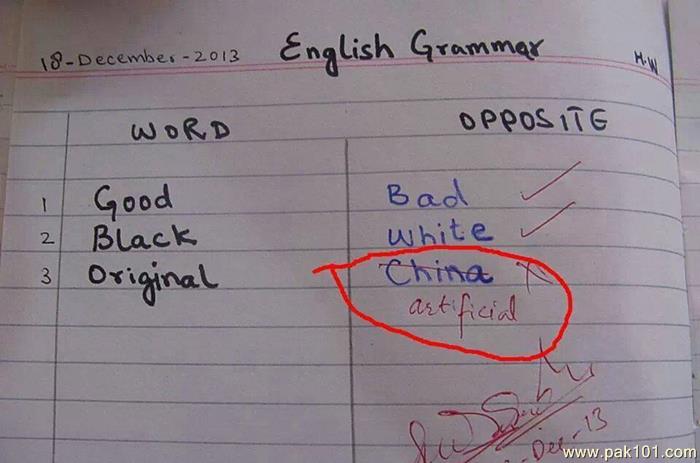 18-December-2013 English Grammar H.W
WORD OPPOSITE
1 Good Bad
2 Black White
3 Original China
artificial
-Dec-13
www.pak101.com